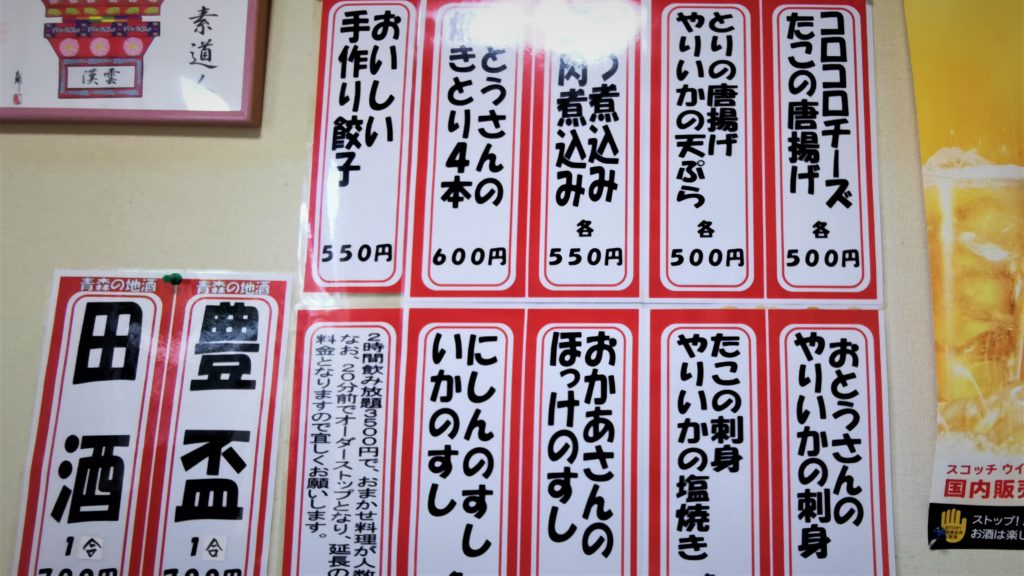 コロコロチーズ
たこの唐揚げ
各
500円
とりの唐揚げ
やりいかの天ぷら
各
500円
煮込み
肉煮込み
各
550円
とうさんの
きとり4本
600円
おいしい
手作り餃子
550円
おとうさんの
やりいかの刺身
たこの刺身
やりいかの塩焼き
おかあさんの
ほっけのすし
にしんのすし
いかのすし
2時間飲み放題3500円で、おまかせ料理が人数
なお、20分前でオーダーストップとなり、延長の
料金となりますので宜しくお願いします。
青森の地酒
豊盃
1合
青森の地酒
田酒
1合
素道
漢雲
スコッチ ウイ
国内販売
ストップ!
お酒は楽し